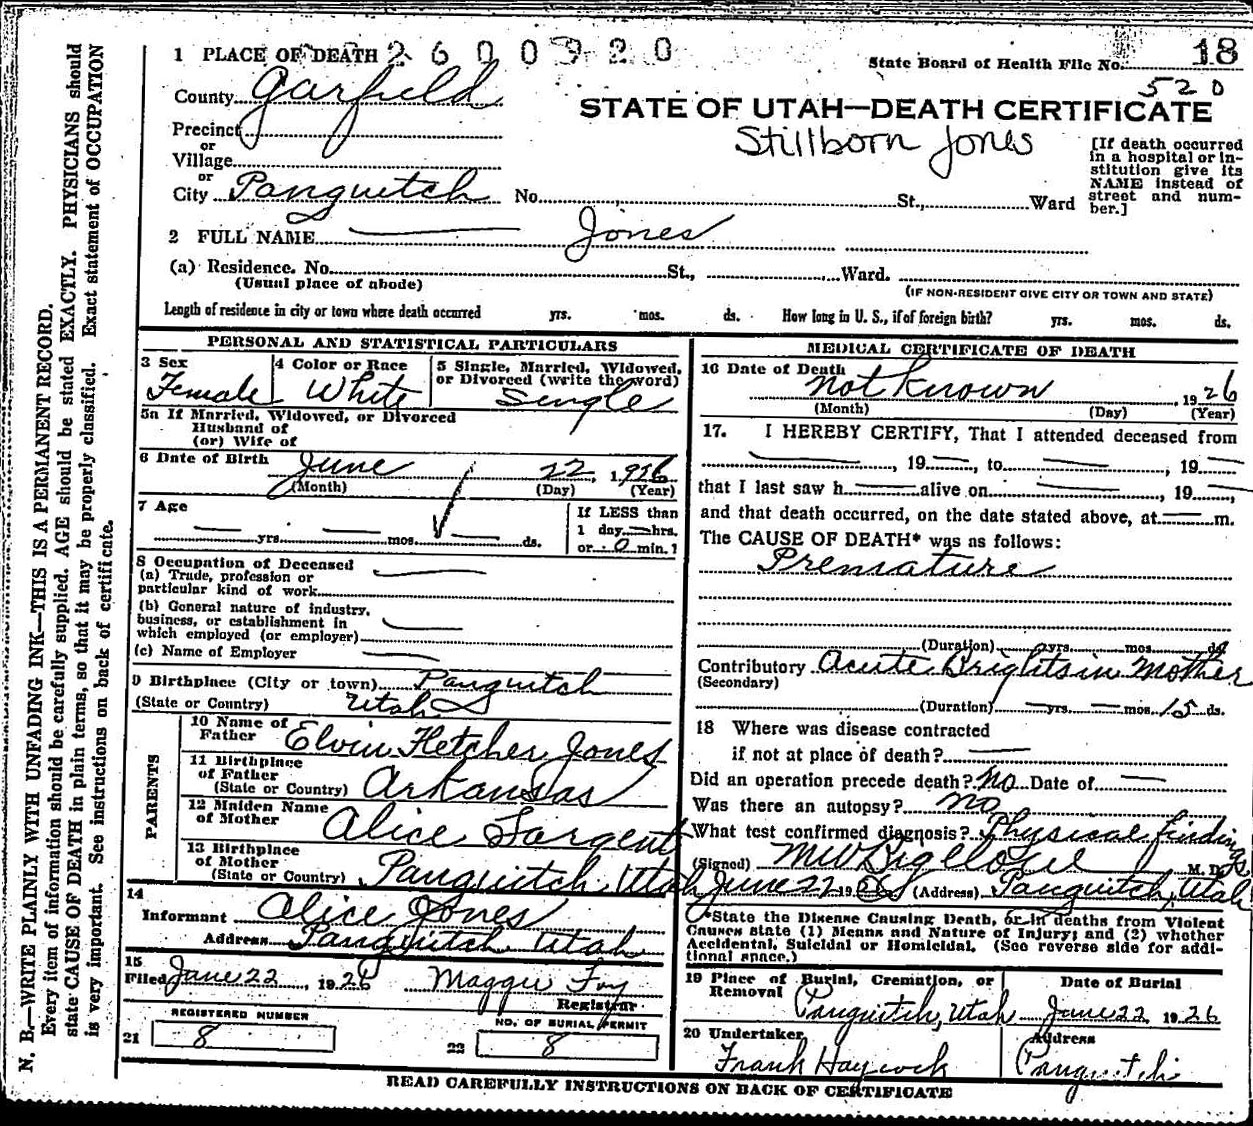 1 PLACE OF DEATH 2600920
State Board of Health File No. 18
520
County Garfield
STATE OF UTAH—DEATH CERTIFICATE
Stillborn Jones
Precinct
or
Village
or
City Panguitch No. St., Ward
[If death occurred
in a hospital or in-
stitution give its
NAME instead of
street and num-
ber.]
2 FULL NAME Jones
(a) Residence. No. St., Ward.
(Usual place of abode) (IF NON-RESIDENT GIVE CITY OR TOWN AND STATE)
Length of residence in city or town where death occurred yrs. mos. ds. How long in U. S., if of foreign birth? yrs. mos. ds.
PERSONAL AND STATISTICAL PARTICULARS
3 Sex Female
4 Color or Race White
5 Single, Married, Widowed,
or Divorced (write the word)
Single
5a If Married, Widowed, or Divorced
Husband of
(or) Wife of
6 Date of Birth June 22, 1926
(Month) (Day) (Year)
7 Age
yrs. mos. ds.
If LESS than
1 day — hrs.
or 0 min. ?
8 Occupation of Deceased
(a) Trade, profession or
particular kind of work
(b) General nature of industry,
business, or establishment in
which employed (or employer)
(c) Name of Employer
9 Birthplace (City or town) Panguitch
(State or Country) Utah
PARENTS
10 Name of
Father Elvin Fletcher Jones
11 Birthplace
of Father
(State or Country) Arkansas
12 Maiden Name
of Mother Alice Sargent
13 Birthplace
of Mother
(State or Country) Panguitch Utah
14
Informant Alice Jones
Address Panguitch Utah
15
Filed June 22, 1926 Maggie Foy
Registrar
REGISTERED NUMBER
21 8
NO. OF BURIAL PERMIT
22 8
MEDICAL CERTIFICATE OF DEATH
16 Date of Death
Not Known, 1926
(Month) (Day) (Year)
17. I HEREBY CERTIFY, That I attended deceased from
—, 19—, to —, 19—
that I last saw h — alive on —, 19—,
and that death occurred, on the date stated above, at — m.
The CAUSE OF DEATH* was as follows:
Premature
(Duration) yrs. mos. ds.
Contributory Acute Brights in Mother
(Secondary)
(Duration) — yrs. — mos. 15 ds.
18 Where was disease contracted
if not at place of death? —
Did an operation precede death? No Date of —
Was there an autopsy? No
What test confirmed diagnosis? Physical findings
(Signed) MW Bigelow M. D.
June 22 1926 (Address) Panguitch, Utah
*State the Disease Causing Death, or in deaths from Violent
Causes state (1) Means and Nature of Injury; and (2) whether
Accidental, Suicidal or Homicidal. (See reverse side for addi-
tional space.)
19 Place of Burial, Cremation, or
Removal Panguitch, Utah
Date of Burial
June 22 1926
20 Undertaker
Frank Haycock
Address
Panguitch
READ CAREFULLY INSTRUCTIONS ON BACK OF CERTIFICATE
N. B.—WRITE PLAINLY WITH UNFADING INK—THIS IS A PERMANENT RECORD.
Every item of information should be carefully supplied. AGE should be stated EXACTLY. PHYSICIANS should
state CAUSE OF DEATH in plain terms, so that it may be properly classified. Exact statement of OCCUPATION
is very important. See instructions on back of certificate.